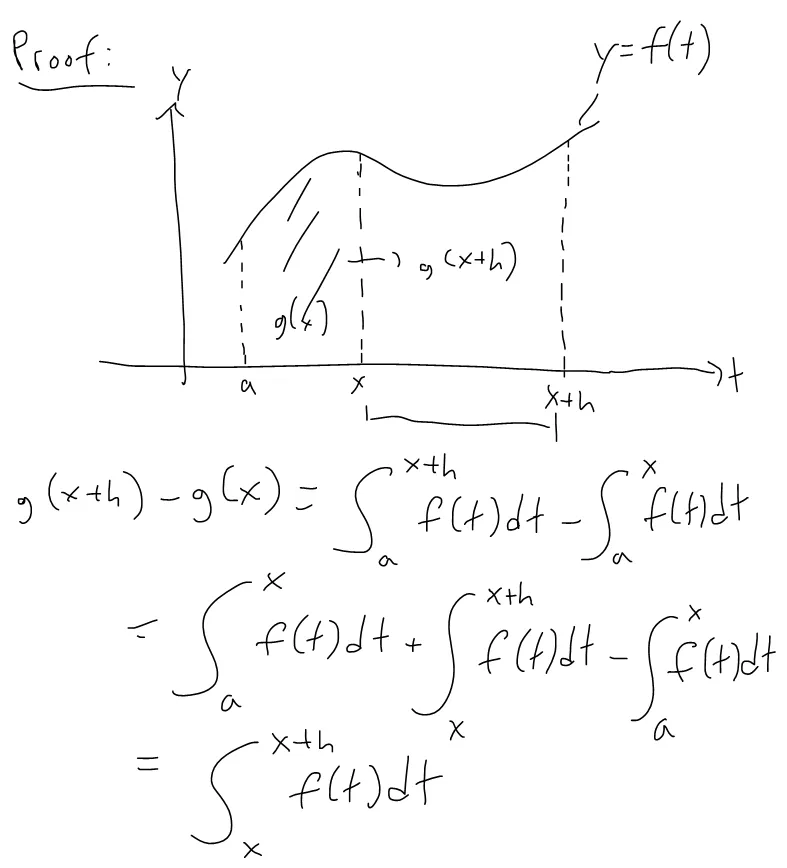 Proof:
y
y=f(t)
g(x+h)
g(x)
t
a
x
x+h
g(x+h)-g(x) = ∫_a^{x+h} f(t)dt - ∫_a^x f(t)dt
= ∫_a^x f(t)dt + ∫_x^{x+h} f(t)dt - ∫_a^x f(t)dt
= ∫_x^{x+h} f(t)dt